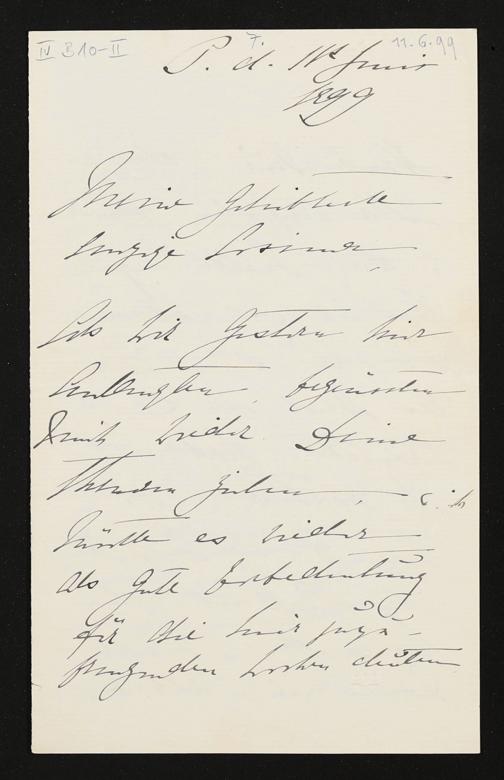 IV B10-II
7.
11.6.99
P. d. 11t Juni
1899
Meine Geliebteste
einzige Cosima,
Als wir Gestern hier
anlangten, begrüssten
mich wieder Deine
theuren Zeilen, ich
möchte es wieder
als gute Vorbedeutung
für die hier
Wochen deuten